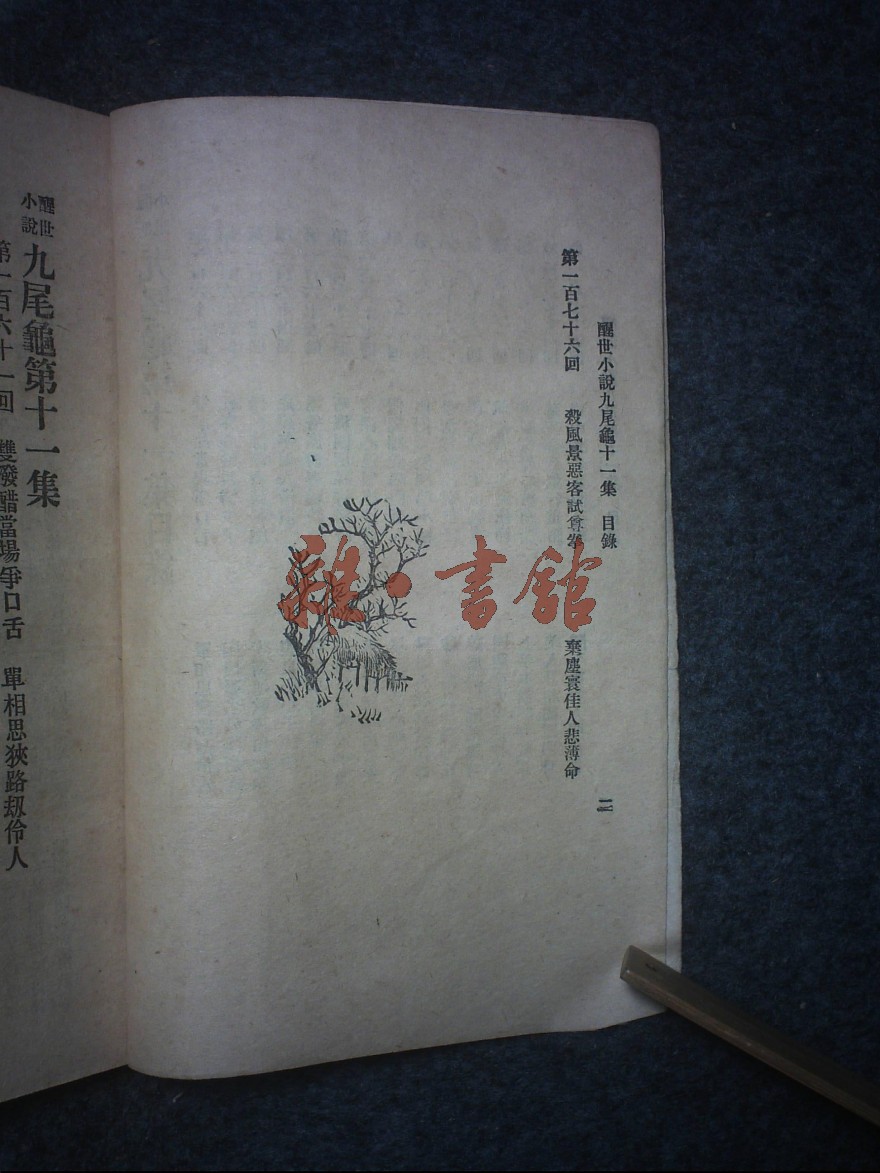 醒世小說九尾龜十一集　目錄
二
第一百七十六回　殺風景惡客試尊拳　棄塵寰佳人悲薄命
雜·書館
醒世
小說
九尾龜第十一集
第一百六十一回　雙潑醋當場爭口舌　單相思狹路刼伶人